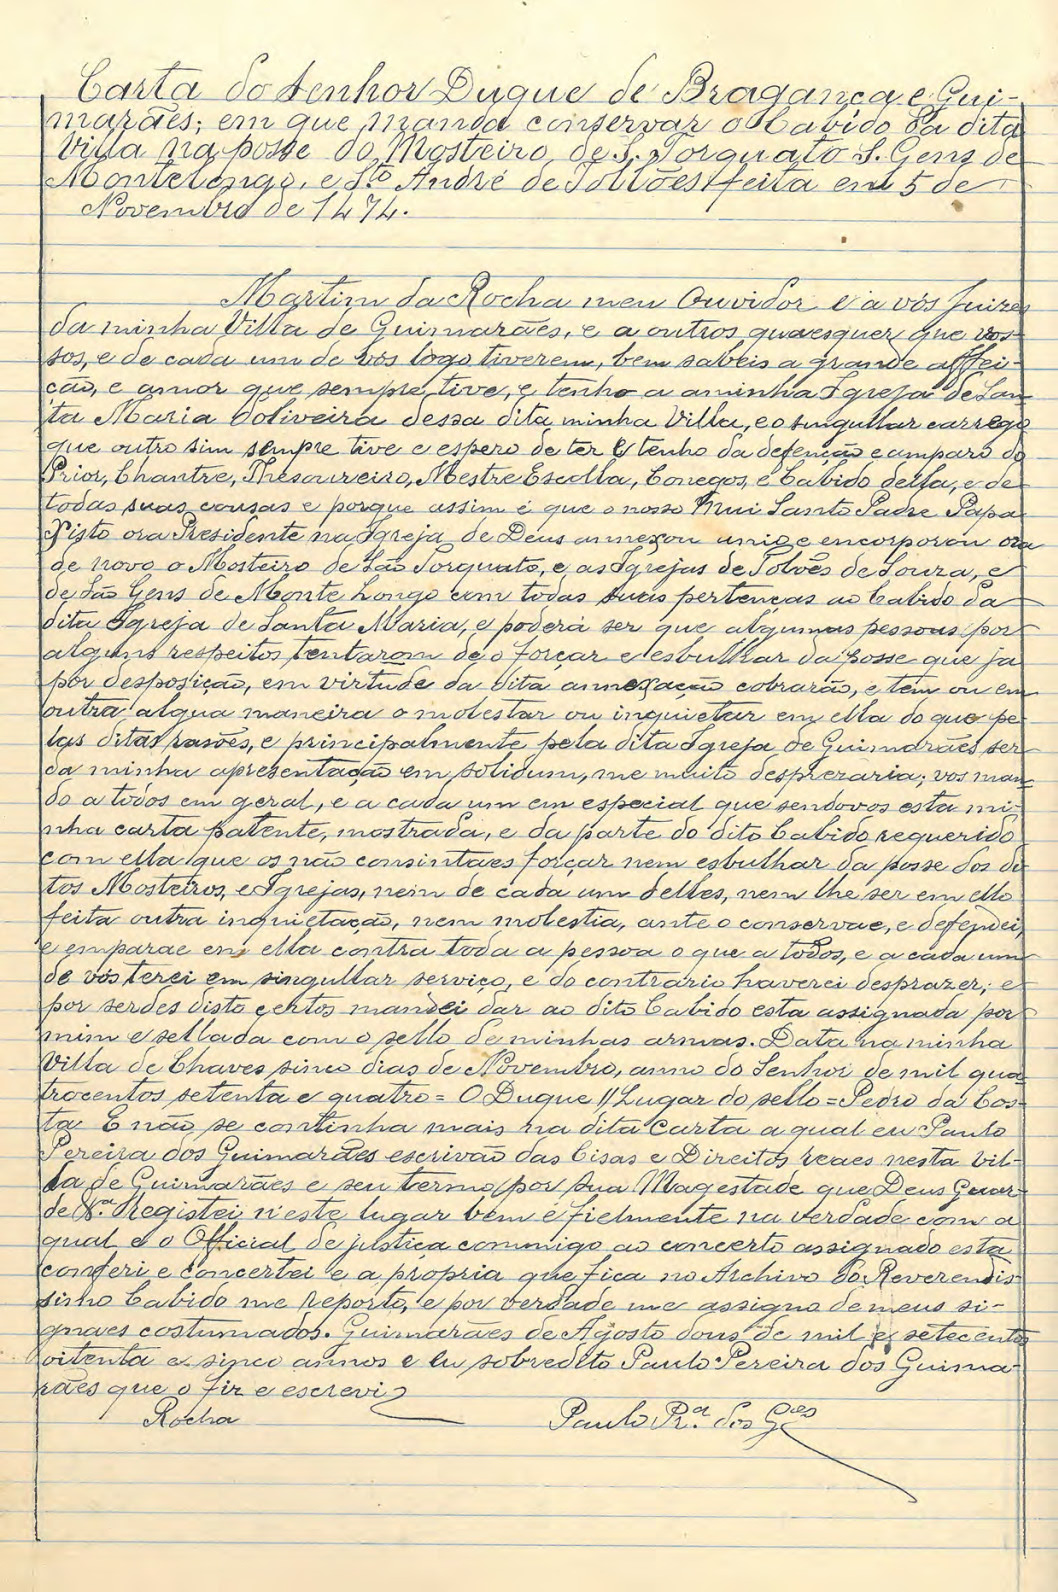 Carta do Senhor Duque de Bragança e Gui-
marães; em que manda conservar o Cabido da dita
Villa na posse do Mosteiro de S. Torquato S. Gens de
Montelongo, e S.to André de Tollões feita em 5 de
Novembro de 1474.
Martim da Rocha meu Ouvidor e a vós Juizes
da minha Villa de Guimarães, e a outros quaesquer que vos-
sos, e de cada um de vós logo tiverem, bem sabeis a grande affei-
ção, e amor que sempre tive, e tenho a aminha Igreja de San-
ta Maria doliveira dessa dita minha Villa, e o singullar carrego
que outro sim sempre tive e espero de ter e tenho da defenção e amparo do
Prior, Chantre, Thesoureiro, Mestre Escolla, Conegos, e Cabido della, e de
todas suas cousas e porque assim é que o nosso Mui Santo Padre Papa
Xisto ora Presidente na Igreja de Deus annexou unio e encorporou ora
de novo o Mosteiro de São Torquato, e as Igrejas de Tolões de Souza, e
de São Gens de Monte Longo com todas suas pertenças ao Cabido da
dita Igreja de Santa Maria, e poderá ser que algumas pessoas por
alguns respeitos tentarom de o forçar e esbulhar da posse que ja
por desposição, em virtude da dita annexação cobrarão, e tem ou em
outra algua maneira o molestar ou inquietar em ella do que pe-
las ditas rasões, e principalmente pela dita Igreja de Guimarães ser
da minha apresentação em solidum, me muito desprezaria; vos man-
do a todos em geral, e a cada um em especial que sendovos esta mi-
nha carta patente, mostrada, e da parte do dito Cabido requerido
com ella que os não consintaes forçar nem esbulhar da posse dos di-
tos Mosteiros, e Igrejas, nem de cada um delles, nem lhe ser em ello
feita outra inquietação, nem molestia, ante o conservae, e defendei,
e emparae em ella contra toda a pessoa o que a todos, e a cada um
de vós terei em singullar serviço, e do contrario haverei desprazer; e
por serdes disto certos mandei dar ao dito Cabido esta assignada por
mim e sellada com o sello de minhas armas. Data na minha
Villa de Chaves sinco dias de Novembro, anno do Senhor de mil qua-
trocentos setenta e quatro = O Duque // Lugar do sello = Pedro da Cos-
ta E não se continha mais na dita carta a qual eu Paulo
Pereira dos Guimarães escrivão das Cisas e Direitos reaes nesta Vil-
la de Guimarães e seu termo por sua Magestade que Deus Guar-
de &.a Registei n'este lugar bem e fielmente na verdade com a
qual e o Official de justiça commigo ao concerto assignado esta
conferi e concertei e a propria que fica no Archivo do Reverendis-
simo Cabido me reporto, e por verdade me assigno de meus si-
gnaes costumados. Guimarães de Agosto dous de mil e setecentos
oitenta e sinco annos e Eu sobredito Paulo Pereira dos Guima-
rães que o fiz e escrevi
Rocha Paulo Pr.a dos G.es